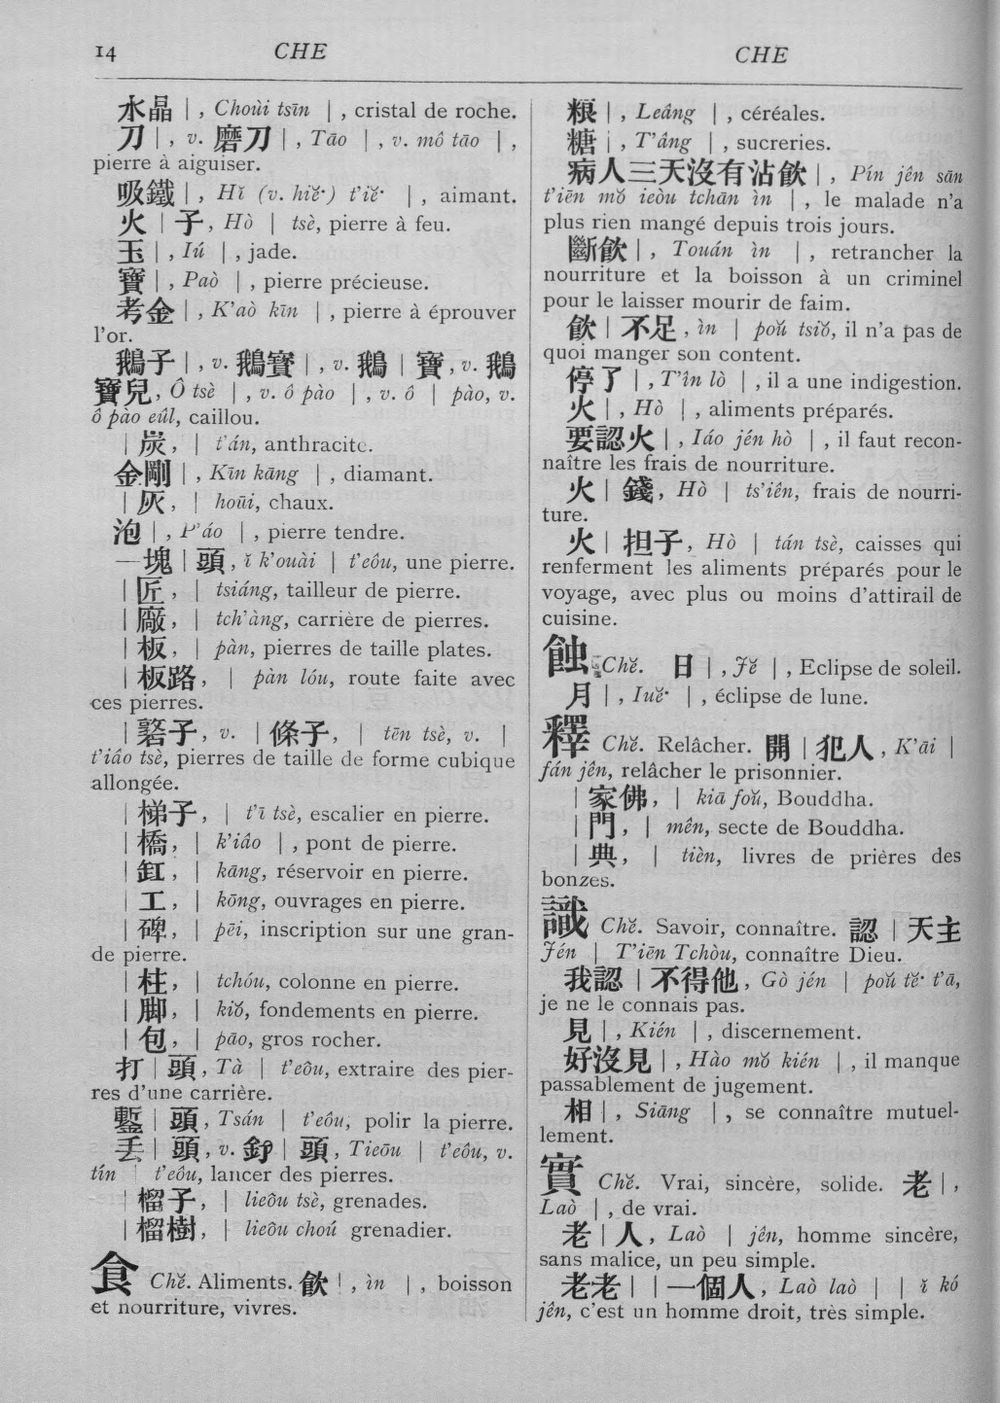 14 CHE CHE
水晶 | , Choùi tsīn | , cristal de roche.
刀 | , v. 磨刀 | , Tāo | , v. mô tāo | ,
pierre à aiguiser.
吸鐵 | , Hĭ (v. hiĕ·) t'iĕ· | , aimant.
火 | 子, Hò | tsè, pierre à feu.
玉 | , Iú | , jade.
寶 | , Paò | , pierre précieuse.
考金 | , K'aò kīn | , pierre à éprouver
l'or.
鵝子 | , v. 鵝寶 | , v. 鵝 | 寶, v. 鵝
寶兒, Ô tsè | , v. ô pào | , v. ô | pào, v.
ô pào eûl, caillou.
| 炭, | t'án, anthracite.
金剛 | , Kīn kāng | , diamant.
| 灰, | hoūi, chaux.
泡 | , P'áo | , pierre tendre.
一塊 | 頭, ĭ k'ouài | t'eôu, une pierre.
| 匠, | tsiáng, tailleur de pierre.
| 廠, | tch'àng, carrière de pierres.
| 板, | pàn, pierres de taille plates.
| 板路, | pàn lóu, route faite avec
ces pierres.
| 子, v. | 條子, | tēn tsè, v. |
t'iâo tsè, pierres de taille de forme cubique
allongée.
| 梯子, | t'ī tsè, escalier en pierre.
| 橋, | k'iâo | , pont de pierre.
| 缸, | kāng, réservoir en pierre.
| 工, | kōng, ouvrages en pierre.
| 碑, | pēi, inscription sur une gran-
de pierre.
| 柱, | tchóu, colonne en pierre.
| 脚, | kiŏ, fondements en pierre.
| 包, | pāo, gros rocher.
打 | 頭, Tà | t'eôu, extraire des pier-
res d'une carrière.
鏨 | 頭, Tsán | t'eôu, polir la pierre.
丢 | 頭, v. | 頭, Tieōu | t'eôu, v.
tín | t'eôu, lancer des pierres.
| 榴子, | lieôu tsè, grenades.
| 榴樹, | lieôu choú grenadier.
食 Chĕ. Aliments. 飲 | , ìn | , boisson
et nourriture, vivres.
粮 | , Leâng | , céréales.
糖 | , T'âng | , sucreries.
病人三天沒有沾飲 | , Pín jên sān
t'iēn mŏ ieòu tchān ìn | , le malade n'a
plus rien mangé depuis trois jours.
斷飲 | , Touán ìn | , retrancher la
nourriture et la boisson à un criminel
pour le laisser mourir de faim.
飲 | 不足, ìn | poŭ tsiŏ, il n'a pas de
quoi manger son content.
停了 | , T'în lò | , il a une indigestion.
火 | , Hò | , aliments préparés.
要認火 | , Iáo jén hò | , il faut recon-
naître les frais de nourriture.
火 | 錢, Hò | ts'iên, frais de nourri-
ture.
火 | 担子, Hò | tán tsè, caisses qui
renferment les aliments préparés pour le
voyage, avec plus ou moins d'attirail de
cuisine.
蝕 Chĕ. 日 | , Jĕ | , Eclipse de soleil.
月 | , Iuĕ· | , éclipse de lune.
釋 Chĕ. Relâcher. 開 | 犯人, K'āi |
fán jên, relâcher le prisonnier.
| 家佛, | kiā foŭ, Bouddha.
| 門, | mên, secte de Bouddha.
| 典, | tièn, livres de prières des
bonzes.
識 Chĕ. Savoir, connaître. 認 | 天主
Jén | T'iēn Tchòu, connaître Dieu.
我認 | 不得他, Gò jén | poŭ tĕ· t'ā,
je ne le connais pas.
見 | , Kién | , discernement.
好沒見 | , Hào mŏ kién | , il manque
passablement de jugement.
相 | , Siāng | , se connaître mutuel-
lement.
實 Chĕ. Vrai, sincère, solide. 老 | ,
Laò | , de vrai.
老 | 人, Laò | jên, homme sincère,
sans malice, un peu simple.
老老 | | 一個人, Laò laò | | ĭ kó
jên, c'est un homme droit, très simple.